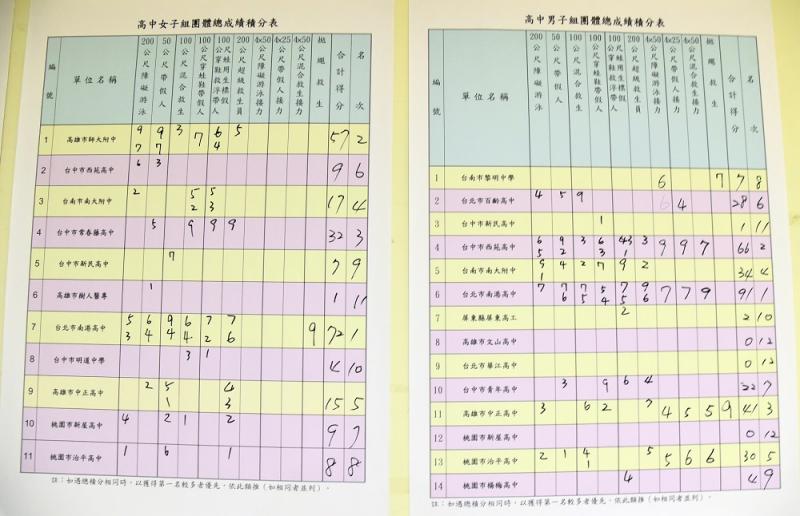 高中女子組團體總成績積分表
編號 單位名稱 200公尺障礙游泳 50公尺帶假人 100公尺混合救生 100公尺穿蛙鞋帶假人 100公尺穿蛙鞋救浮帶假人 200公尺超級救生員 4x50公尺障礙游泳接力 4x25公尺帶假人接力 4x50公尺混合救生接力 拋繩救生 合計得分 名次
1 高雄市師大附中 9 7 9 7 3 7 6 4 5 57 2
2 台中市西苑高中 6 3 9 6
3 台南市南大附中 2 5 2 5 3 17 4
4 台中市常春藤高中 5 9 9 9 32 3
5 台中市新民高中 7 7 9
6 高雄市樹人醫專 1 1 11
7 台北市南港高中 5 3 6 4 9 4 6 4 7 2 7 6 9 72 1
8 台中市明道中學 3 1 4 10
9 高雄市中正高中 2 5 1 4 3 15 5
10 桃園市新屋高中 4 2 1 2 9 7
11 桃園市治平高中 1 6 1 8 8
註：如遇總積分相同時，以獲得第一名較多者優先，依此類推（如相同者並列）。
高中男子組團體總成績積分表
編號 單位名稱 200公尺障礙游泳 50公尺帶假人 100公尺混合救生 100公尺穿蛙鞋帶假人 100公尺穿蛙鞋救浮帶假人 200公尺超級救生員 4x50公尺障礙游泳接力 4x25公尺帶假人接力 4x50公尺混合救生接力 拋繩救生 合計得分 名次
1 台南市黎明中學 6 7 7 8
2 台北市百齡高中 4 5 9 6 4 28 6
3 台中市新民高中 1 1 11
4 台中市西苑高中 6 5 9 2 3 6 3 4 3 1 3 9 9 7 66 2
5 台南市南大附中 9 1 4 2 7 9 2 34 4
6 台北市南港高中 7 7 6 7 5 5 4 7 5 9 6 7 7 9 91 1
7 屏東縣屏東高工 2 2 10
8 高雄市文山高中 0 12
9 台北市華江高中 0 12
10 台中市青年高中 3 9 6 4 22 7
11 高雄市中正高中 3 6 2 7 4 5 5 9 41 3
12 桃園市新屋高中 0 12
13 桃園市治平高中 2 1 4 1 5 5 6 6 30 5
14 桃園市楊梅高中 4 4 9
註：如遇總積分相同時，以獲得第一名較多者優先，依此類推（如相同者並列）。